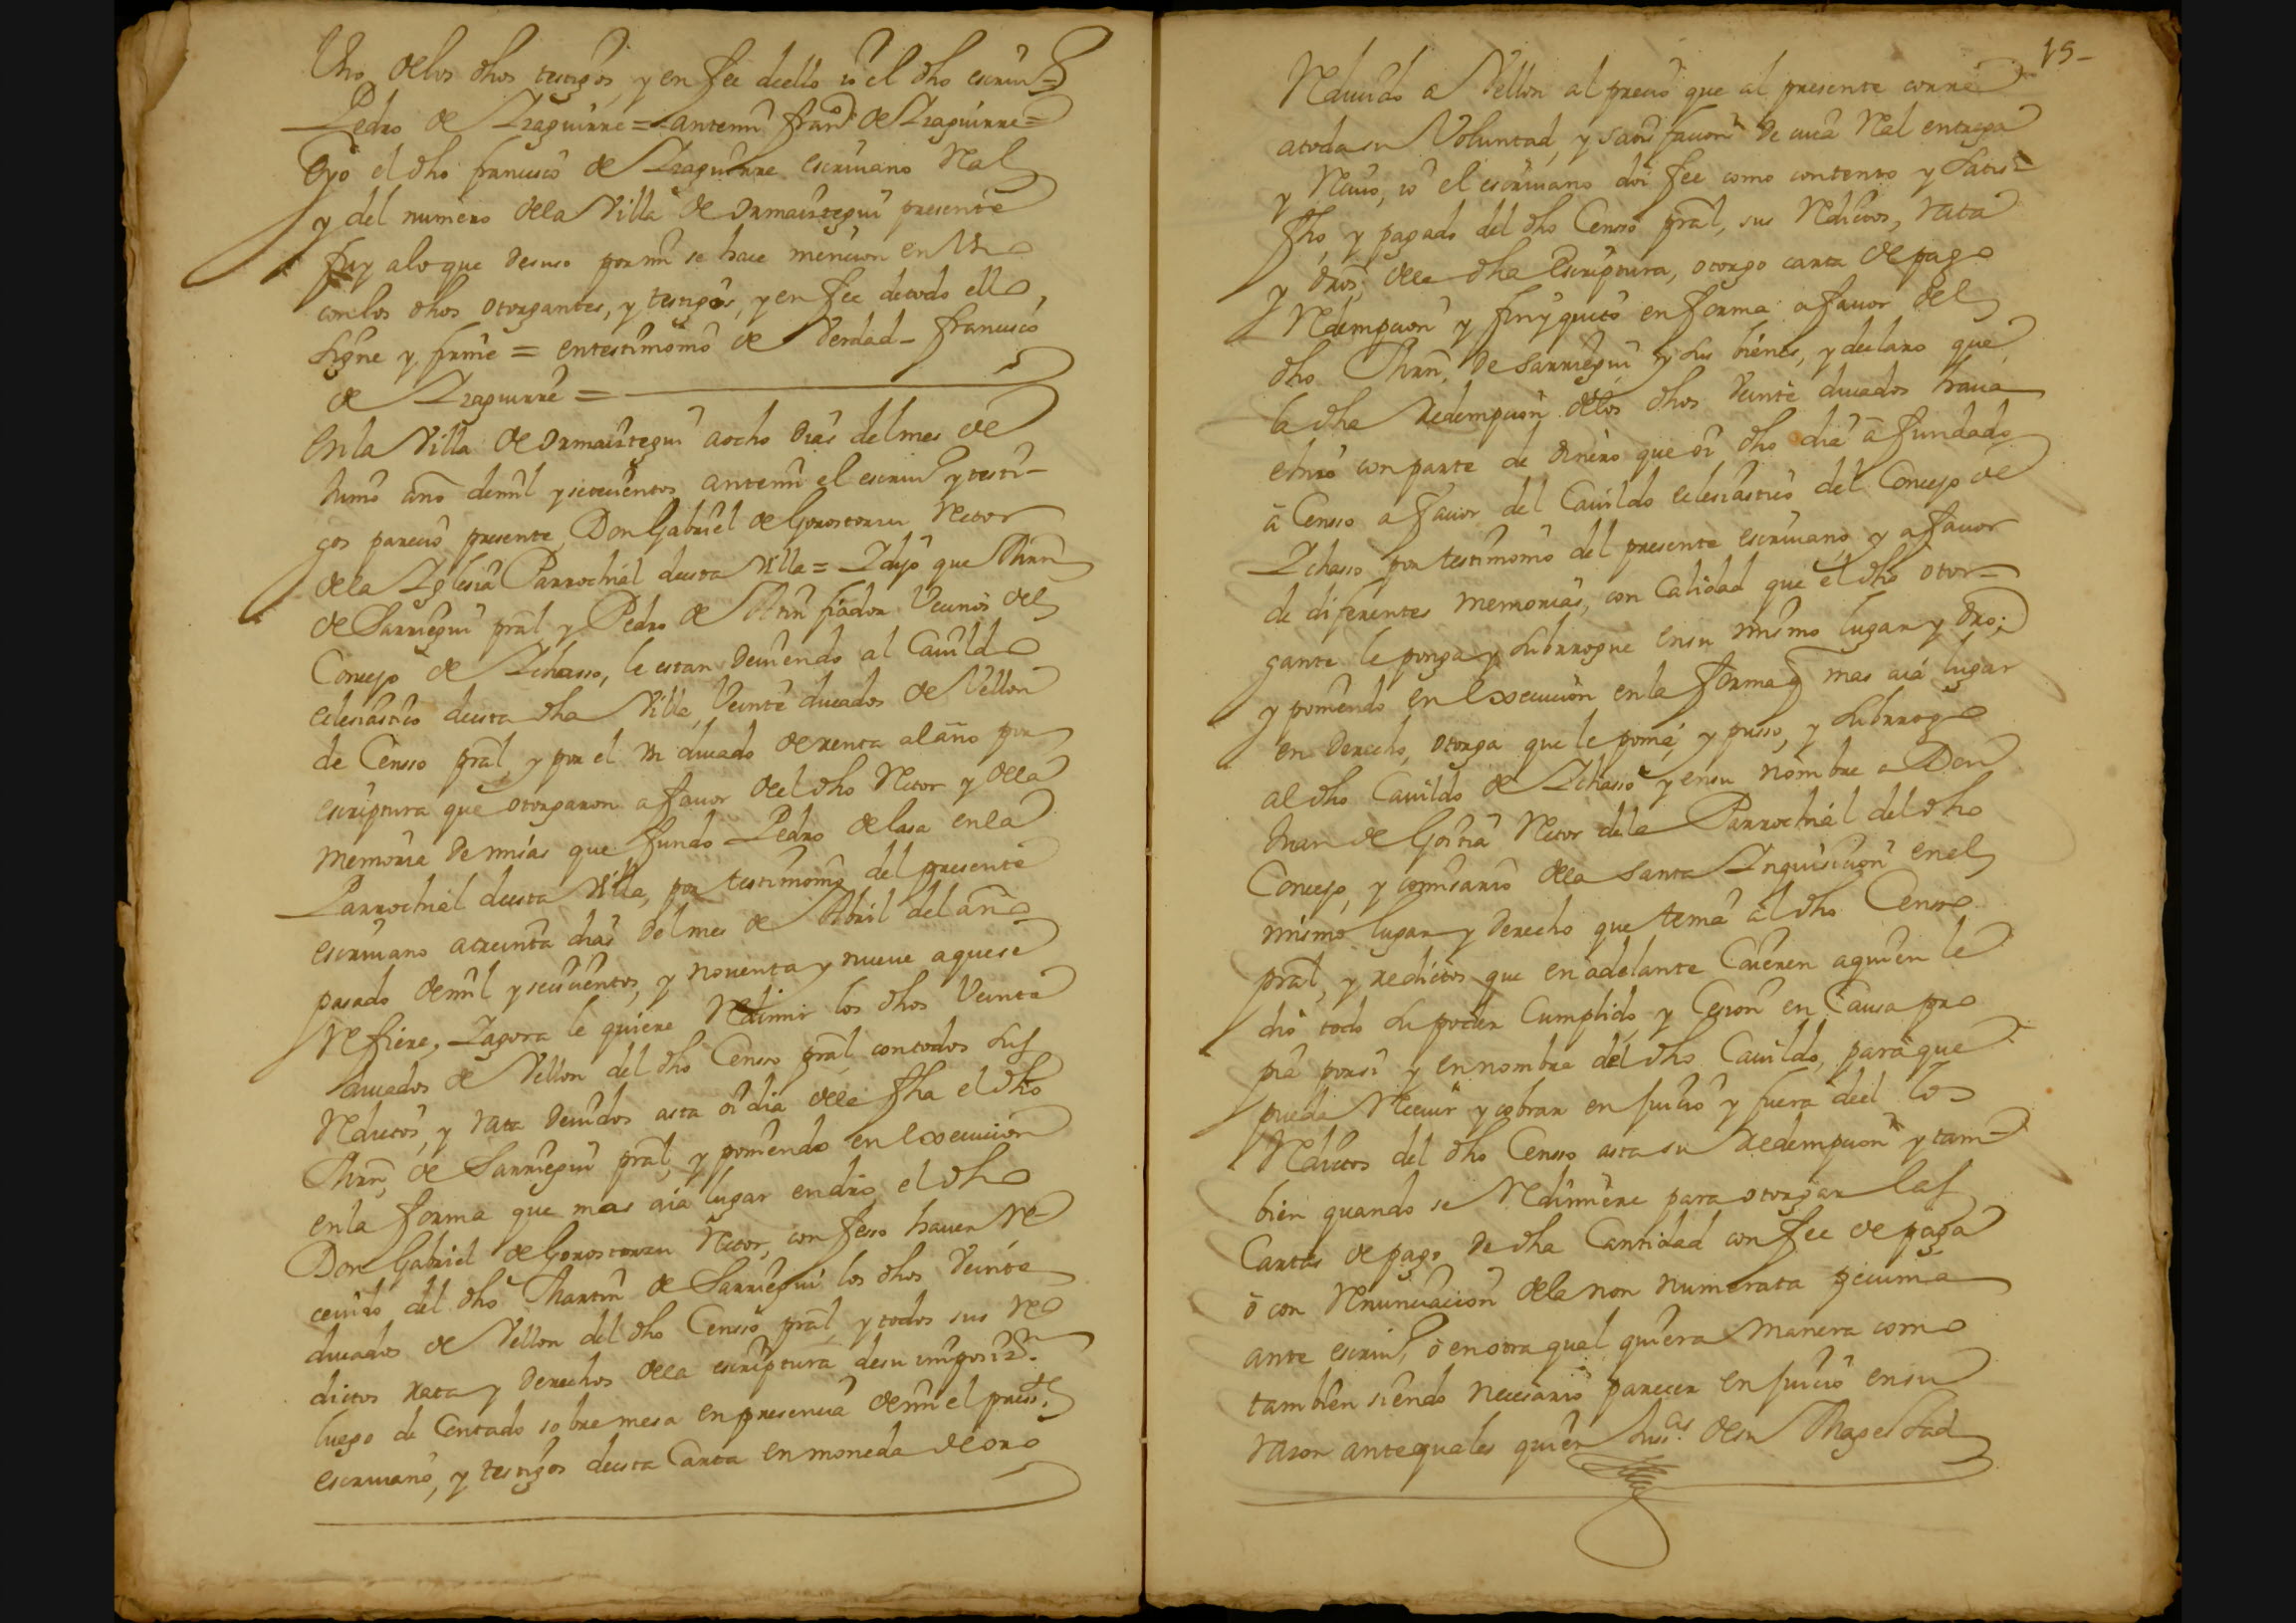 Uno delos dhos testigos, y en fee deello io el dho escriuº
Pedro de Izaguirre = antemi franco de Izaguirre =
Eyo el dho francisco de Izaguirre escriuano Real
y del numero dela Villa de Ormaiztegui presente
fuy alo que desuso pormi se hace mencion en Uno
conlos dhos otorgantes, y testigos, y en fee detodo ello,
signe y firme = entestimonio de Verdad - francisco
de Izaguirre =
Enla Villa de Ormaiztegui aocho dias delmes de
Junio año demil ysetecientos antemi el escriuº y testi-
gos parecio presente Don Gabriel de Gorostorzu Retor
dela Iglesia Parrochial deesta Villa = Idijo que Mrn
de Sarriegui pral y Pedro de fiador Vecinos del
Concejo de Ichasso, le estan deuiendo al Cauildo
eclesiastico deesta dha Villa, Veinte ducados de Vellon
de Censso pral, y por el Un ducado derenta alaño por
escriptura que otorgaron afauor deel dho Retor y dela
memoria demisas que fundo Pedro delasa enla
Parrochial deesta Villa, por testimonio del presente
escriuano atreinta dias del mes de Abril del año
pasado demil yseiscientos, y nouenta y nueue aquese
Refiere, Iagora le quiere Redimir los dhos Veinte
ducados de Vellon del dho Censso pral contodos sus
Reditos, y rata deuidos asta oi dia dela fha el dho
Mrn, de Sarriegui pral, y poniendo en execucion
enla forma que mas aia lugar endro, el dho
Don Gabriel deGorostorzu Retor, confesso hauer Re
ceuido del dho Martin de Sarriegui los dhos Veinte
ducados de Vellon del dho Censso pral, y todos sus Re
ditos rata y derechos dela escriptura desu imposizon.
luego de Contado sobre mesa enpresencia demi el presste.
escriuano, y testigos deesta Carta enmoneda deoro
15-
Reducido a Vellon al precio que al presente corre
atoda su Voluntad, y satisfacion de cuia Real entrega
y Reciuo, io el escriuano doi fee como contento y Satis-
fho, y pagado del dho Censso pral, sus Reditos, rata
y dros, dela dha Escriptura, otorgo carta depago
Redempcion y finyquito enforma afauor del
dho Mrn, de Sarriegui y sus bienes, y declaro que
la dha redempcion delos dhos Veinte ducados haua
ehizo conparte de dinero que oi dho dia a fundado
a Censso afauor del Cauildo eclesiastico del Concejo de
Ichasso por testimonio del presente escriuano y afauor
de diferentes memorias, con Calidad que el dho otor-
gante le ponga y subrrogue ensu mismo lugar y dro;
y poniendo en Execucion enla forma q mas aia lugar
en derecho, otorga que le ponia, y pusso, y subrrogo
al dho Cauildo de Ichasso y ensu nombre a Don
Juan de Goitia Retor dela Parrochial del dho
Concejo, y comisario dela santa Inquisicion enel
mismo lugar y derecho que tenia al dho Censso
pral, y reditos que en adelante Caieren aquien le
dio todo su poder Cumplido, y Cesion en Causa pro
pia porsi y ennombre del dho Cauildo, paraque
pueda Receuir y cobrar en juicio y fuera deel los
Reditos del dho Censso asta su redempcion y tam
bien quando se Redimiere para otorgar las
Cartas depago de dha Cantidad confee de paga
o con Renunciacion dela non numerata pecunia
ante escriuº, o enotra qual quiera manera como
tambien siendo necesario parecer en juicio ensu
razon antequales quier Jussas. desu Magestad